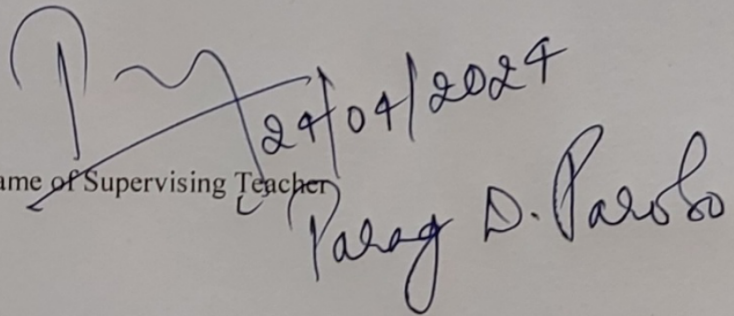 24/04/2024
ame of Supervising Teacher
Parag D. Parobo